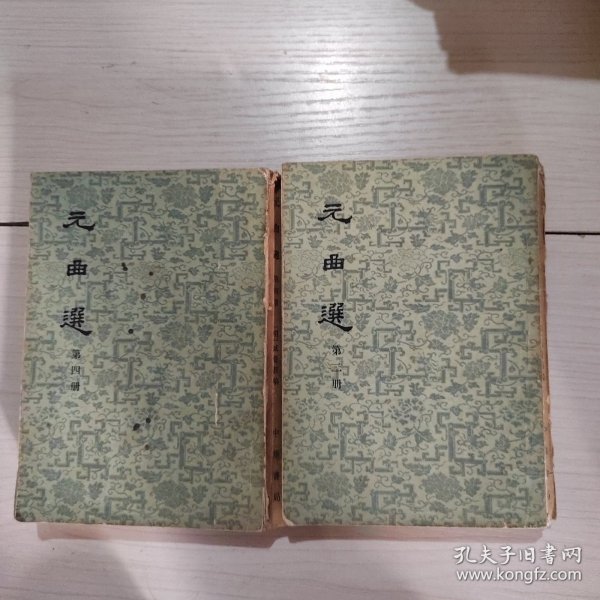 元曲選
第四册
元曲選
第二册
中華書局
孔夫子旧书网
www.kongfz.com